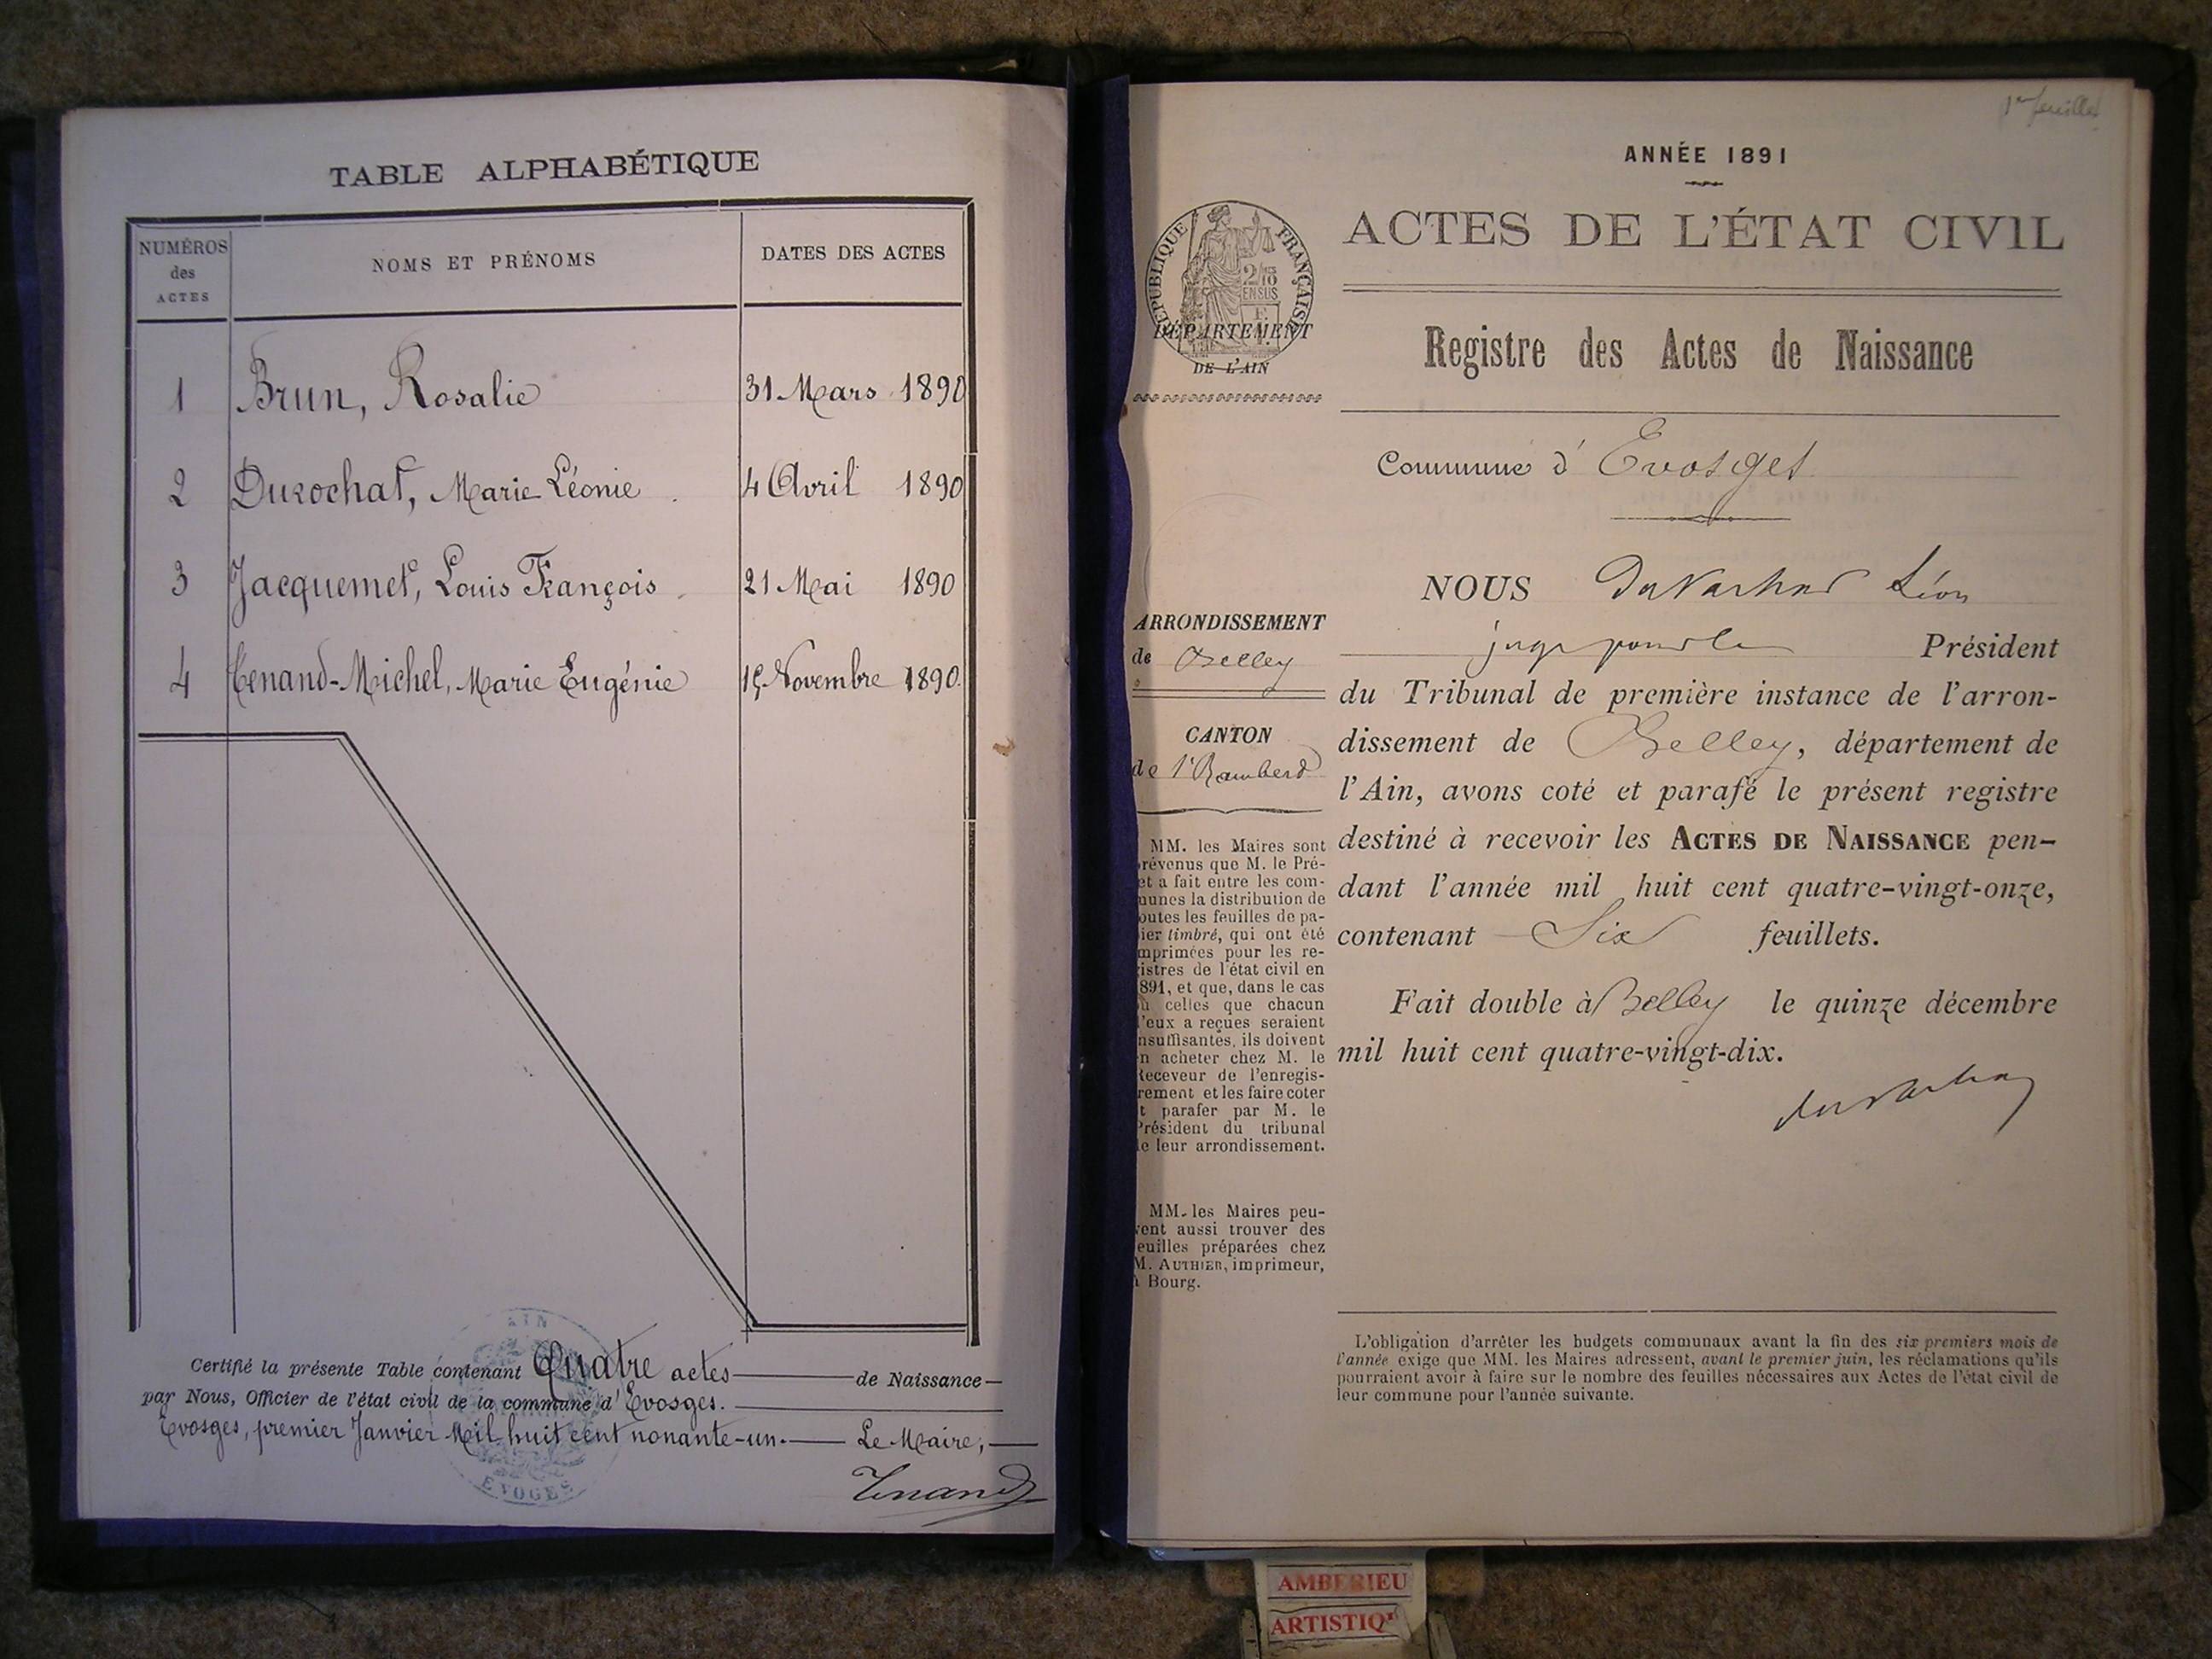 TABLE ALPHABÉTIQUE
NUMÉROS
des
ACTES
NOMS ET PRÉNOMS
DATES DES ACTES
1 Brun, Rosalie 31 Mars 1890
2 Durochat, Marie Léonie 4 Avril 1890
3 Jacquemet, Louis François 21 Mai 1890
4 Tenand-Michel, Marie Eugénie Novembre 1890.
Certifié la présente Table contenant Quatre actes de Naissance
par Nous, Officier de l'état civil de la commune d'Evosges.
Evosges, premier Janvier Mil huit cent nonante-un. Le Maire,
Tenand
AIN
EVOGES
1er feuillet
ANNÉE 1891
ACTES DE L'ÉTAT CIVIL
RÉPUBLIQUE FRANÇAISE
2/10
EN SUS
DÉPARTEMENT
DE L'AIN
Registre des Actes de Naissance
Commune d' Evosges
ARRONDISSEMENT
de Belley
CANTON
de St Rambert
MM. les Maires sont
révenus que M. le Pré-
et a fait entre les com-
unes la distribution de
outes les feuilles de pa-
ier timbré, qui ont été
mprimées pour les re-
istres de l'état civil en
891, et que, dans le cas
ù celles que chacun
'eux a reçues seraient
nsuffisantes, ils doivent
n acheter chez M. le
Receveur de l'enregis-
rement et les faire coter
t parafer par M. le
Président du tribunal
e leur arrondissement.
MM. les Maires peu-
vent aussi trouver des
euilles préparées chez
M. AUTHIER, imprimeur,
à Bourg.
NOUS Léon
juge pour le Président
du Tribunal de première instance de l'arron-
dissement de Belley, département de
l'Ain, avons coté et parafé le présent registre
destiné à recevoir les ACTES DE NAISSANCE pen-
dant l'année mil huit cent quatre-vingt-onze,
contenant Six feuillets.
Fait double à Belley le quinze décembre
mil huit cent quatre-vingt-dix.
L'obligation d'arrêter les budgets communaux avant la fin des six premiers mois de
l'année exige que MM. les Maires adressent, avant le premier juin, les réclamations qu'ils
pourraient avoir à faire sur le nombre des feuilles nécessaires aux Actes de l'état civil de
leur commune pour l'année suivante.
AMBERIEU
ARTISTIQ